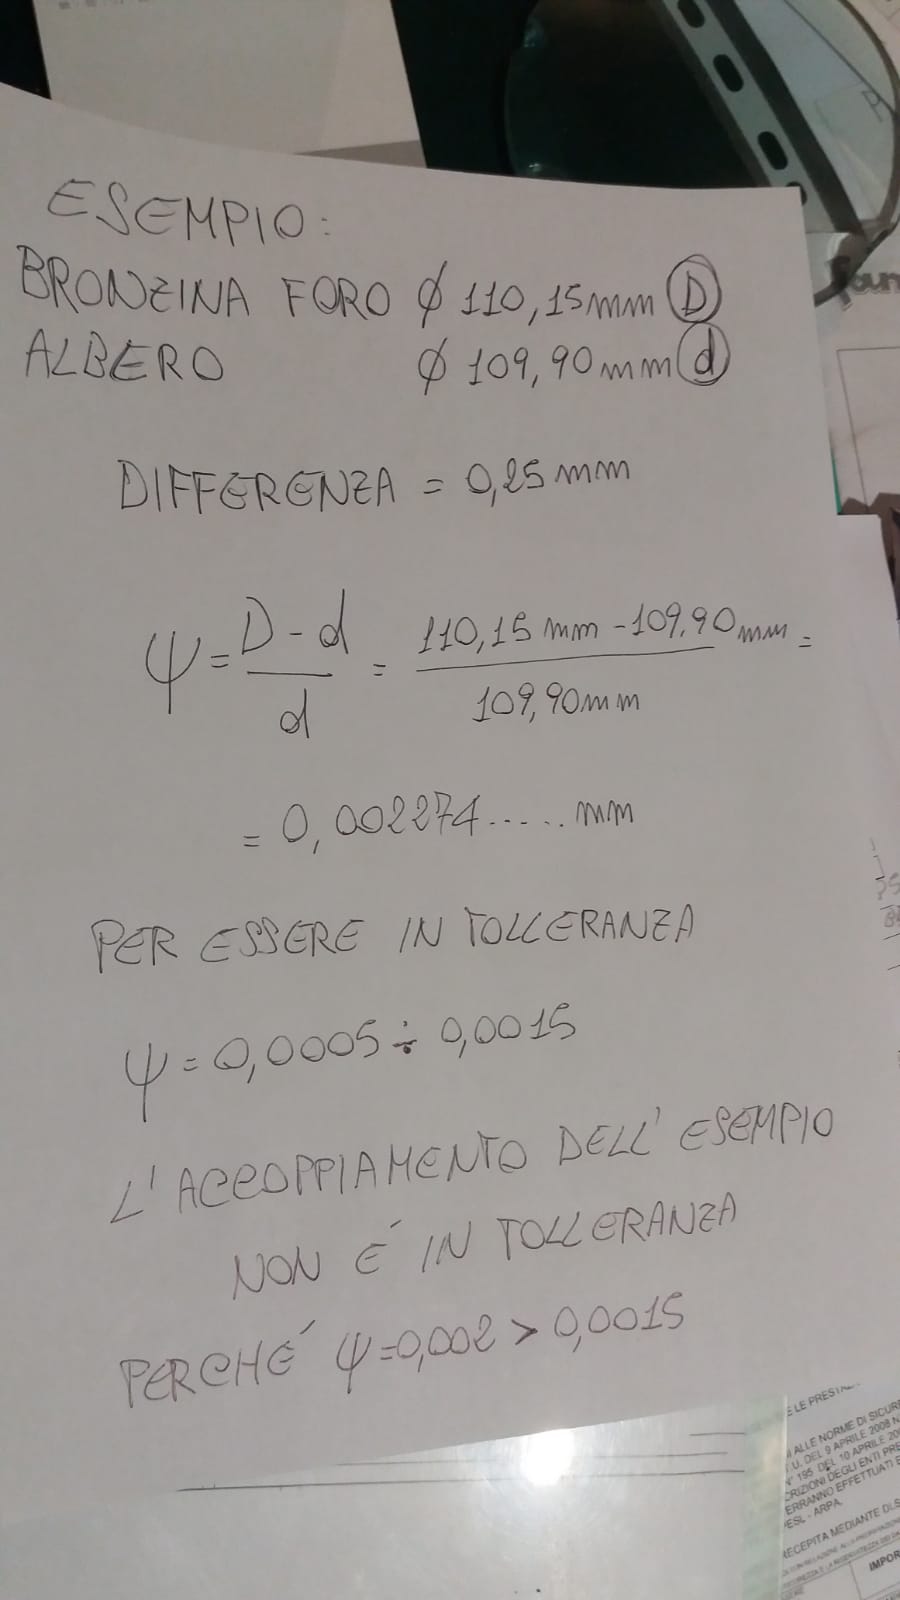 ESEMPIO:
BRONZINA FORO ϕ 110,15mm D
ALBERO ϕ 109,90mm d
DIFFERENZA = 0,25mm
ψ = D - d / d = 110,15 mm - 109,90mm / 109,90mm =
= 0,002274..... mm
PER ESSERE IN TOLLERANZA
ψ = 0,0005 ÷ 0,0015
L'ACCOPPIAMENTO DELL'ESEMPIO
NON É IN TOLLERANZA
PERCHÉ ψ=0,002 > 0,0015
E LE PRESTA
ALLE NORME DI SICUR
.U. DEL 9 APRILE 2008 N
N° 195 DEL 10 APRILE 20
CRIZIONI DEGLI ENTI PRE
ERRANNO EFFETTUATI E
PESL - ARPA.
RECEPITA MEDIANTE DI S
IMPOR